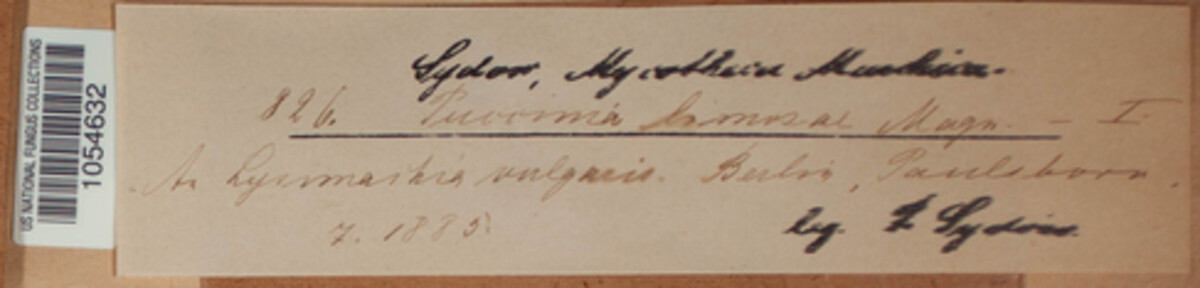 US NATIONAL FUNGUS COLLECTIONS
1054632
Sydow, Mycotheca Marchica.
826. Puccinia limosae Magn. – I.
An Lysimachia vulgaris. Berlin, Paulsborn.
7. 1885.
leg. P. Sydow.